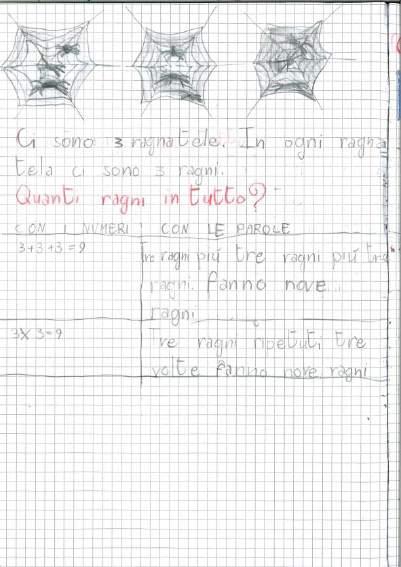 Ci sono 3 ragnatele. In ogni ragna
tela ci sono 3 ragni.
Quanti ragni in tutto?
CON I NUMERI CON LE PAROLE
3+3+3=9
Tre ragni più tre ragni più tre
ragni fanno nove
ragni
3x3=9
Tre ragni ripetuti tre
volte fanno nove ragni